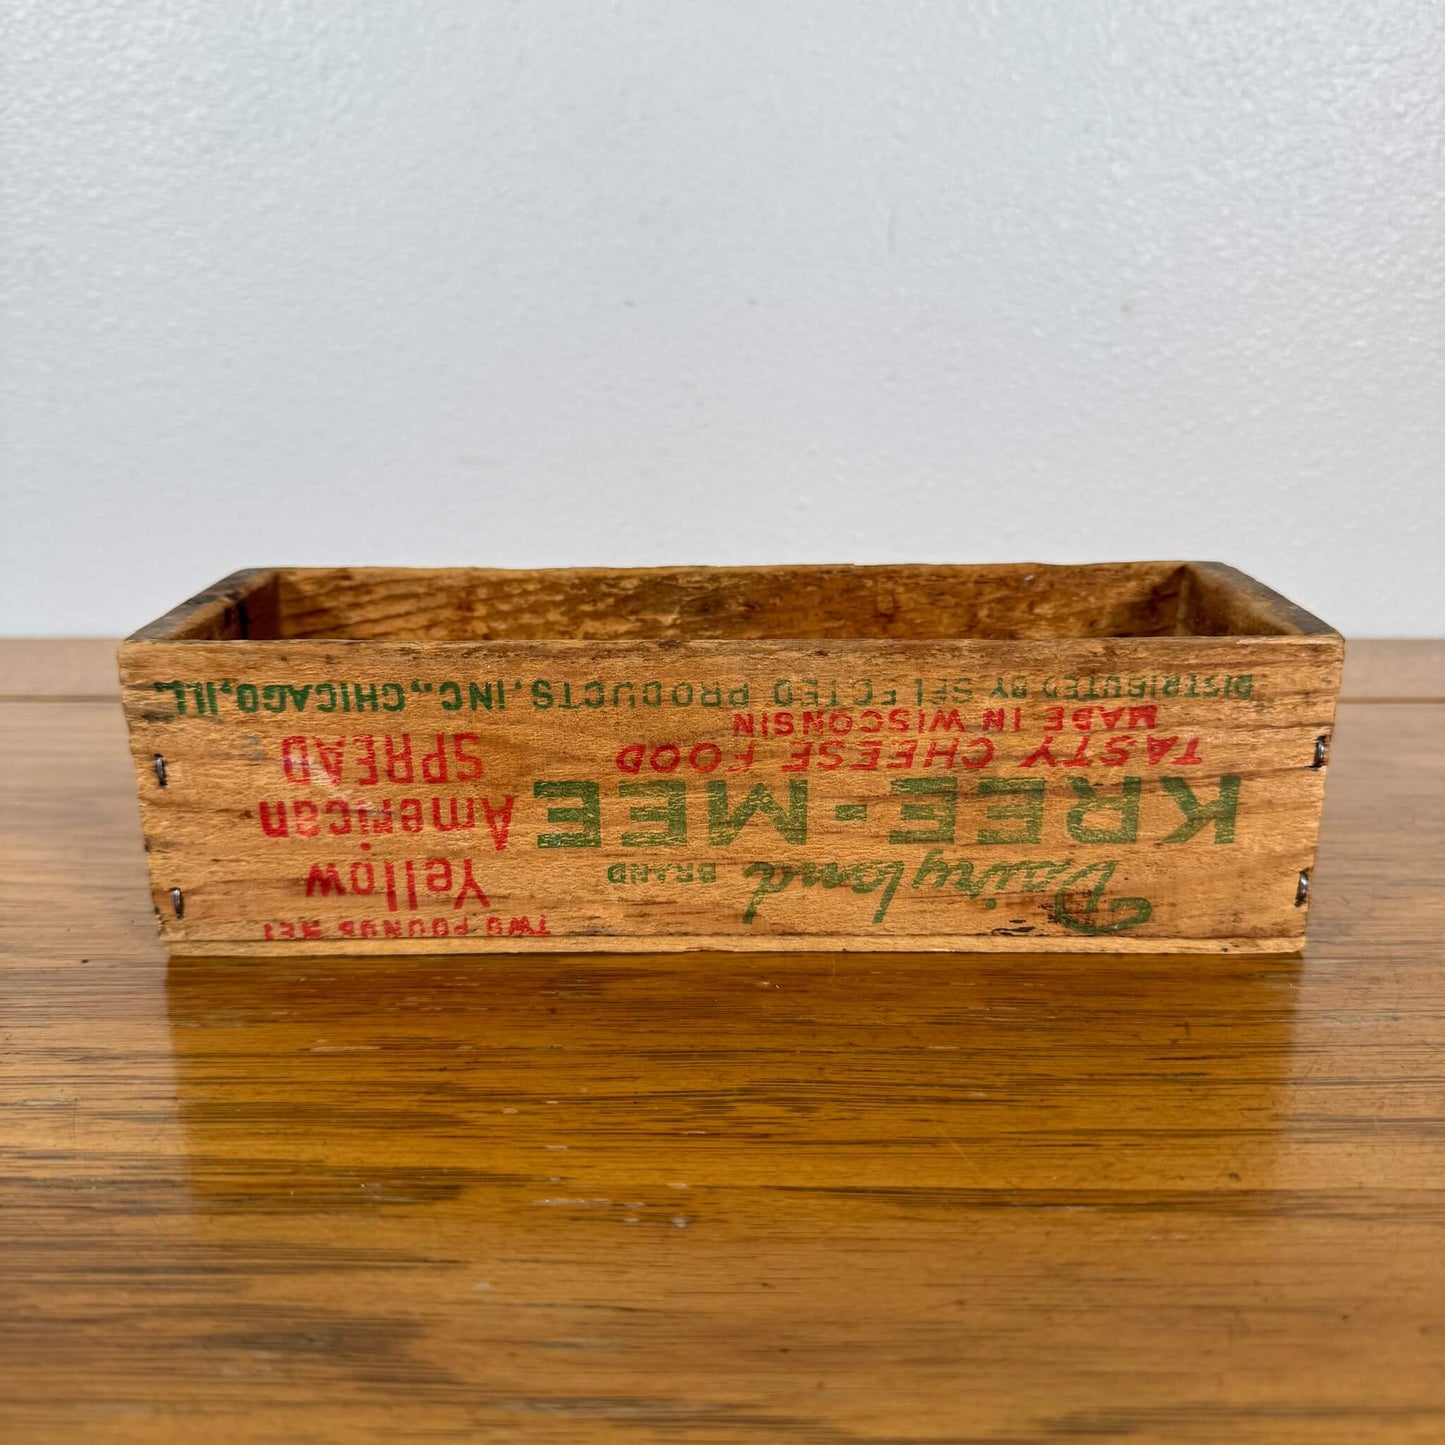 Dairyland BRAND
KREE-MEE
TASTY CHEESE FOOD
MADE IN WISCONSIN
TWO POUNDS NET
Yellow
American
SPREAD
DISTRIBUTED BY SELECTED PRODUCTS, INC., CHICAGO, ILL.